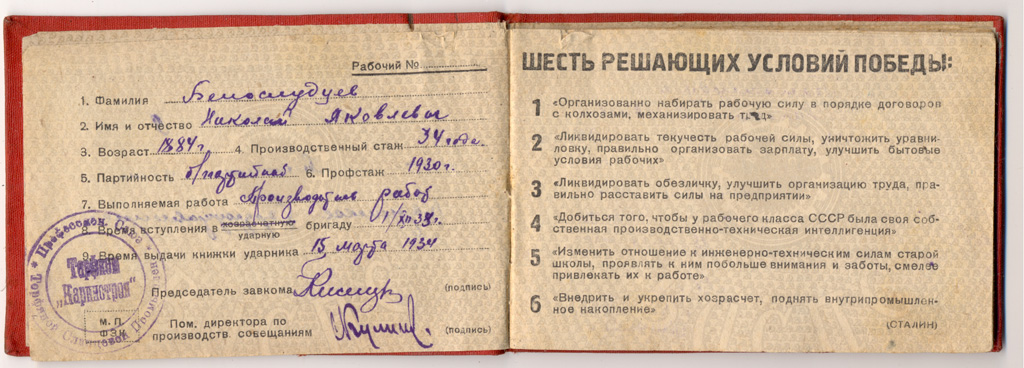 Рабочий №
1. Фамилия Белослудцев
2. Имя и отчество Николай Яковлевич
3. Возраст 1884 г. 4. Производственный стаж 34 года.
5. Партийность б/партийный 6. Профстаж 1930 г.
7. Выполняемая работа Производитель работ
8. Время вступления в хозрасчетную бригаду 1/XII 33 г.
ударную
9. Время выдачи книжки ударника 15 марта 1934
Председатель завкома (подпись)
М. П.
ФЗК
Пом. директора по
производств. совещаниям (подпись)
Профессион. Союз
Торфком
„Каринстроя"
ШЕСТЬ РЕШАЮЩИХ УСЛОВИЙ ПОБЕДЫ:
1 «Организованно набирать рабочую силу в порядке договоров
с колхозами, механизировать труд»
2 «Ликвидировать текучесть рабочей силы, уничтожить уравни-
ловку, правильно организовать зарплату, улучшить бытовые
условия рабочих»
3 «Ликвидировать обезличку, улучшить организацию труда, пра-
вильно расставить силы на предприятии»
4 «Добиться того, чтобы у рабочего класса СССР была своя соб-
ственная производственно-техническая интеллигенция»
5 «Изменить отношение к инженерно-техническим силам старой
школы, проявлять к ним побольше внимания и заботы, смелее
привлекать их к работе»
6 «Внедрить и укрепить хозрасчет, поднять внутрипромышлен-
ное накопление»
(СТАЛИН)